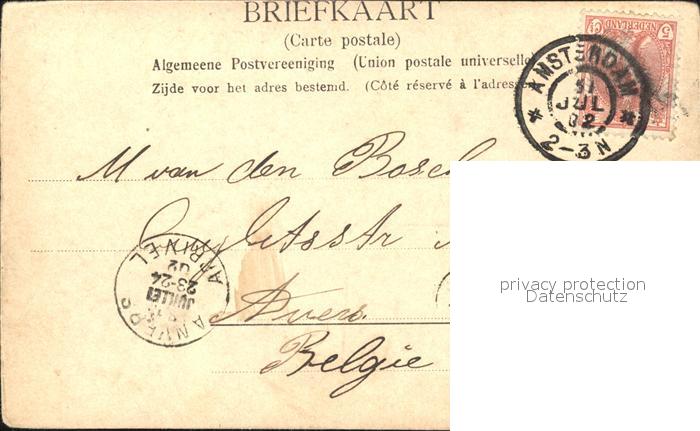 BRIEFKAART
(Carte postale)
Algemeene Postvereeniging (Union postale universelle)
Zijde voor het adres bestemd. (Côté réservé à l'adresse
NEDERLAND
5 Ct
5
AMSTERDAM
31
JUL
02
2-3N
M van den Bosch
Anvers
Belgie
ANVERS
JUILLET
23-24
02
privacy protection
Datenschutz